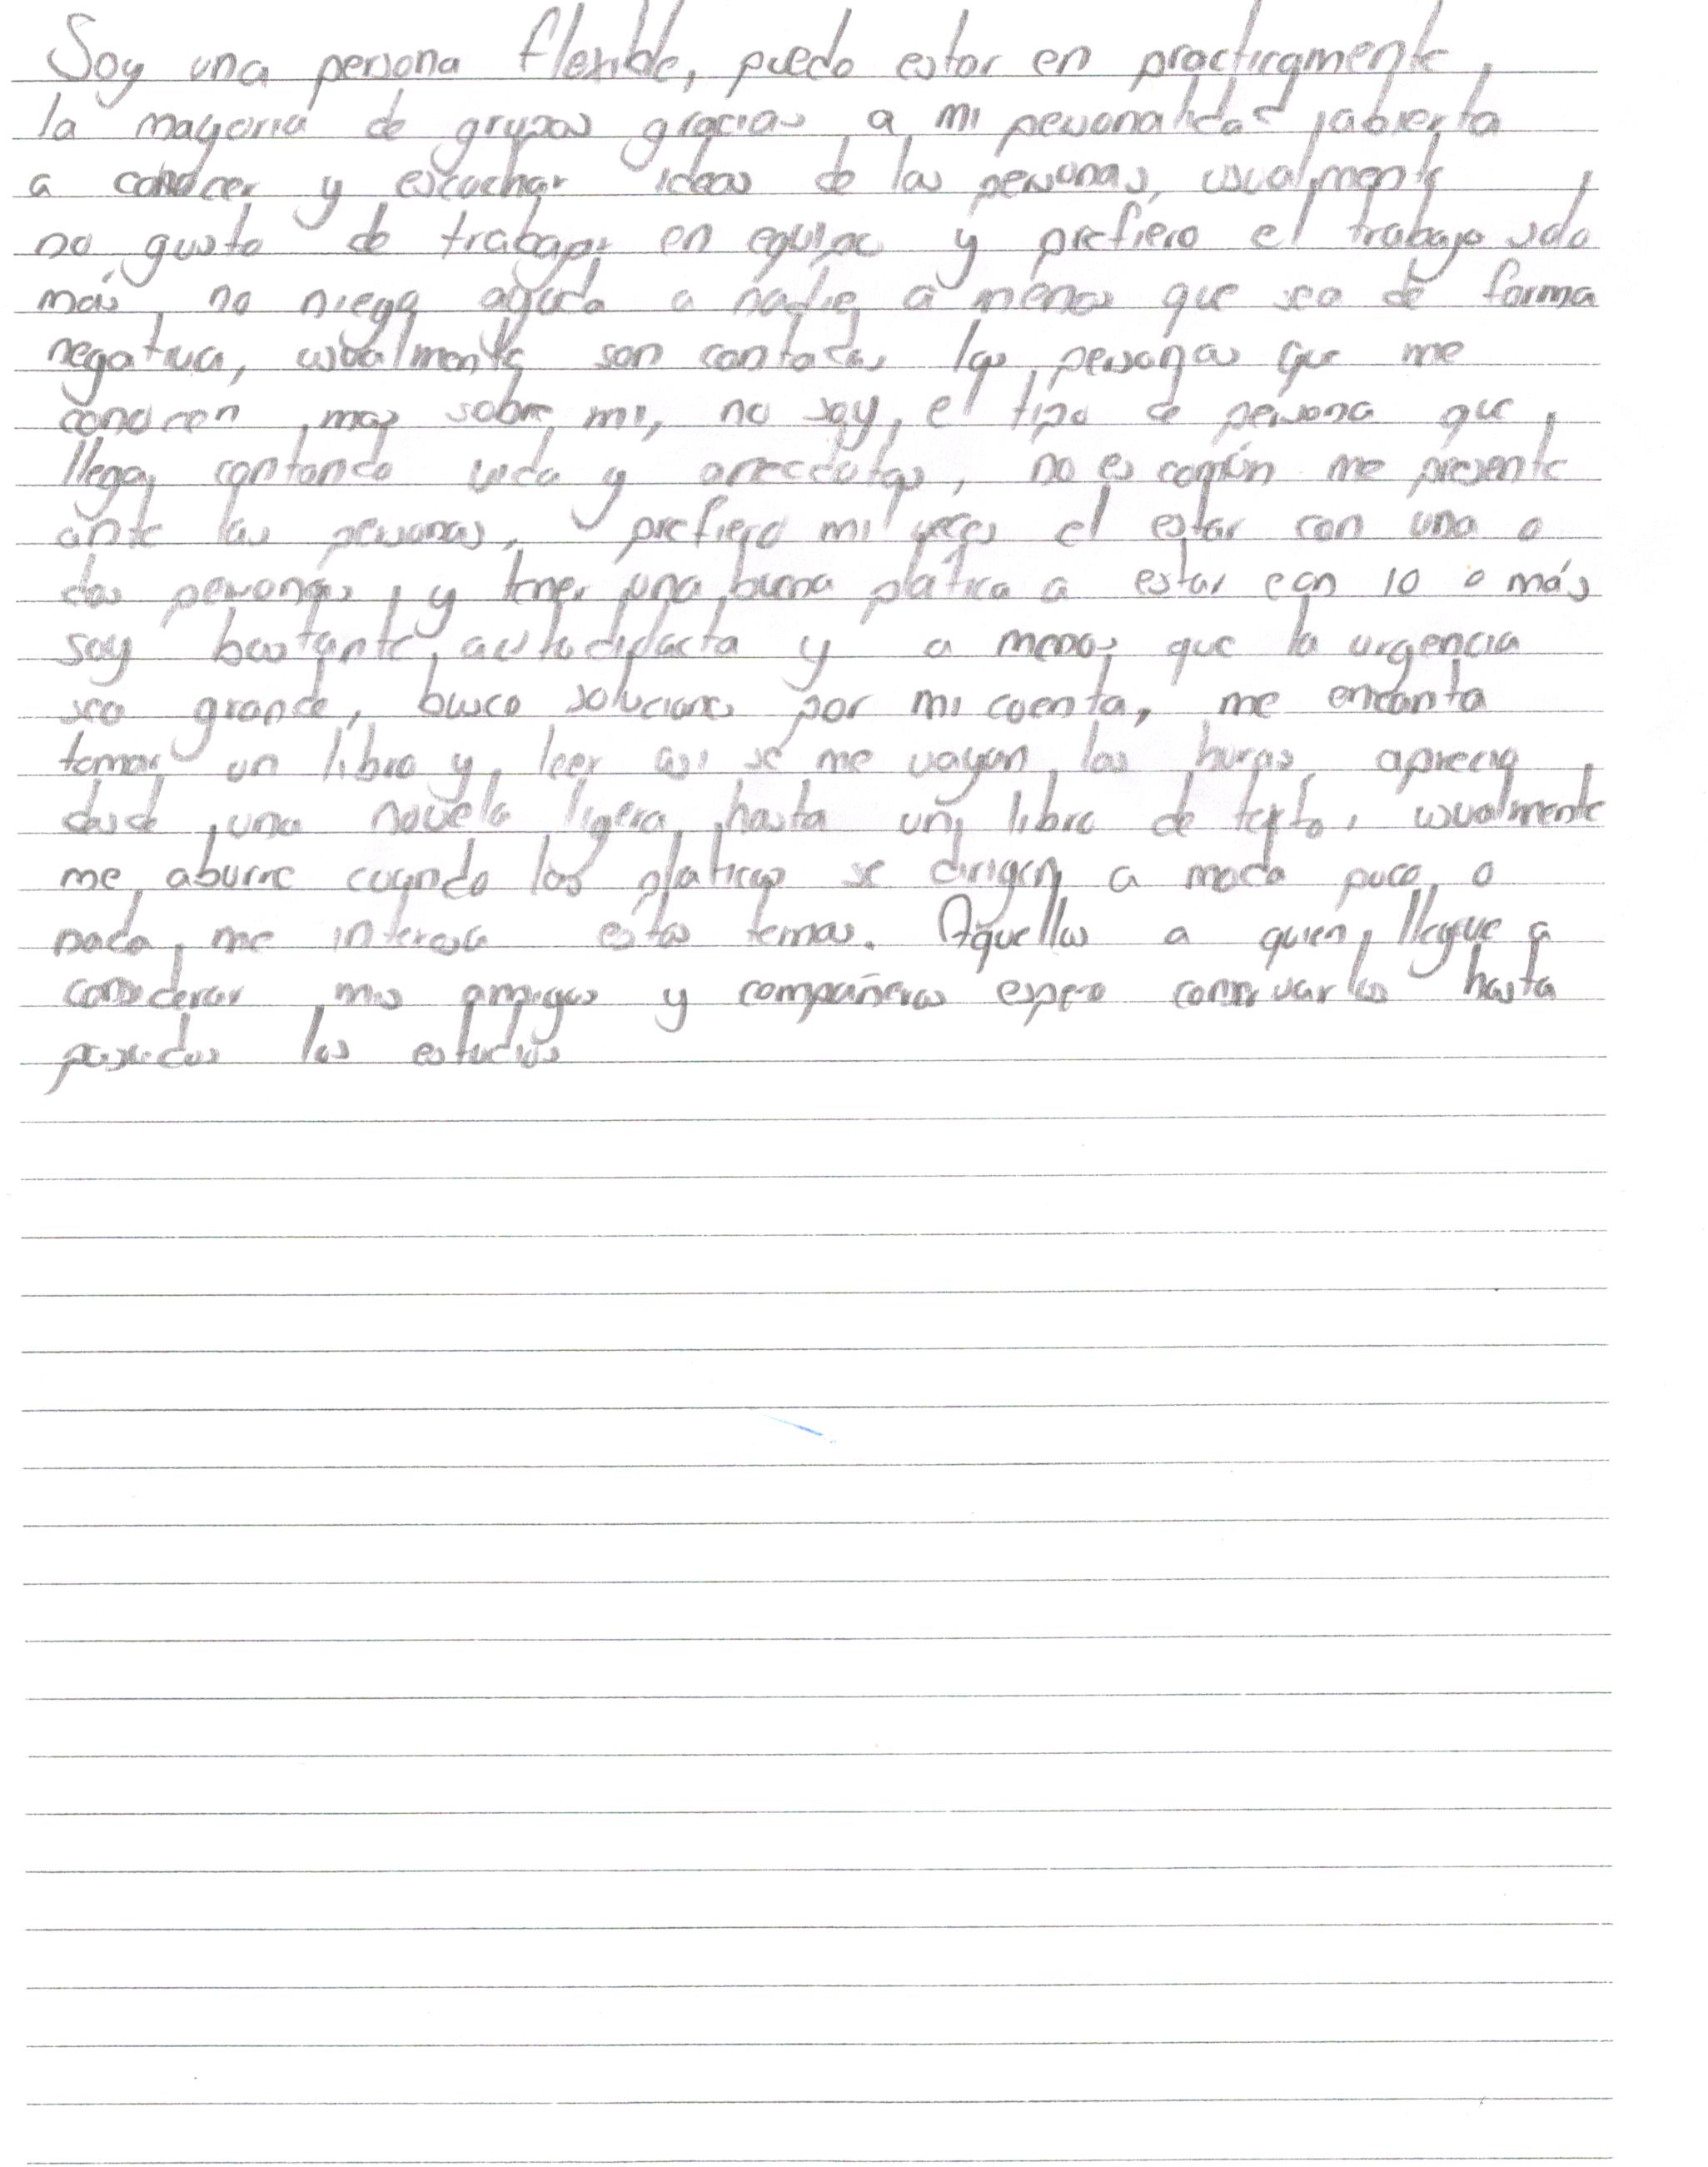 Soy una persona flexible, puedo estar en practicamente
la mayoria de grupos gracias a mi personalidad abierta
a conocer y escuchar ideas de las personas, usualmente
no gusto de trabajar en equipo y prefiero el trabajo solo
más no niego ayuda a nadie a menos que sea de forma
negativa, usualmente son contadas las personas que me
conocen mas sobre mi, no soy el tipo de persona que
llega contando vida y anecdotas, no es común me presente
ante las personas, prefiero mil veces el estar con una o
dos personas y tener una buena plática a estar con 10 o más
soy bastante autodidacta y a menos que la urgencia
sea grande, busco soluciones por mi cuenta, me encanta
tomar un libro y leer asi se me vayan las horas, aprecio
desde una novela ligera hasta un libro de texto, usualmente
me aburre cuando las platicas se dirigen a moda poco o
nada me interesa estos temas. Aquellos a quien llegue a
considerar mis amigos y compañeros espero conservarlos hasta
pasados los estudios